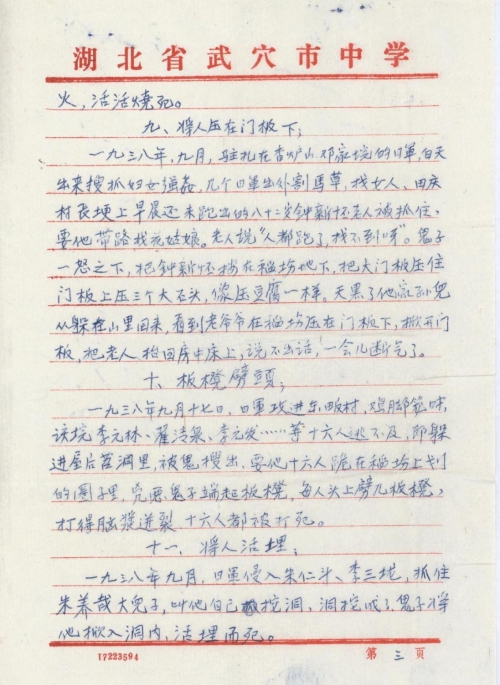 湖北省武穴市中学
火，活活燒死。
九、将人压在门板下；
一九三八年，九月，驻扎在香炉山邓家垸的日軍，白天
出来搜抓妇女强姦，几个日軍出外割馬草，找女人、田庆
村長埂上早晨还未跑出的八十二岁钟新怀老人被抓住、
要他带路找花姑娘。老人说"人都跑了，找不到呀"。鬼子
一怒之下，把钟新怀捺在稻场地下，把大门板压住
门板上压三个大石头，像压豆腐一样。天黑了他家孙兒
从躲在山里回来，看到老爷爷在稻场压在门板下，掀开门
板，把老人抬回房中床上，说不出话，一会儿断气了。
十、板櫈劈頭；
一九三八年九月十七日，日軍攻进东畈村，
该垸李元林、翟清泉、李元发……等十六人逃不及，即躲
进屋后苕洞里，被鬼搜出，要他十六人跪在稻场上划
的圈子里，兇恶鬼子端起板櫈，每人头上劈几板櫈，
打得脑漿迸裂 十六人都被打死。
十一、将人活埋；
一九三八年九月，日軍侵入朱仁斗、李三垅，抓住
朱养哉大兒子，叫他自己挖洞，洞挖成了鬼子将
他掀入洞内，活埋而死。
17223594
第三页